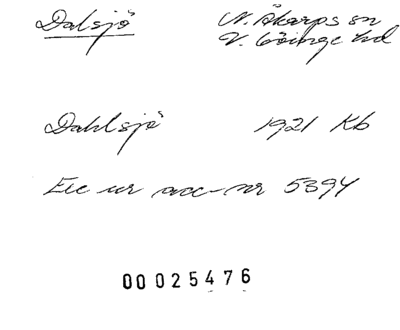 Dalsjö N. Åkarps sn
V. Göinge hd
Dahlsjö 1921 Kb
Exc ur acc-nr 5394
00025476